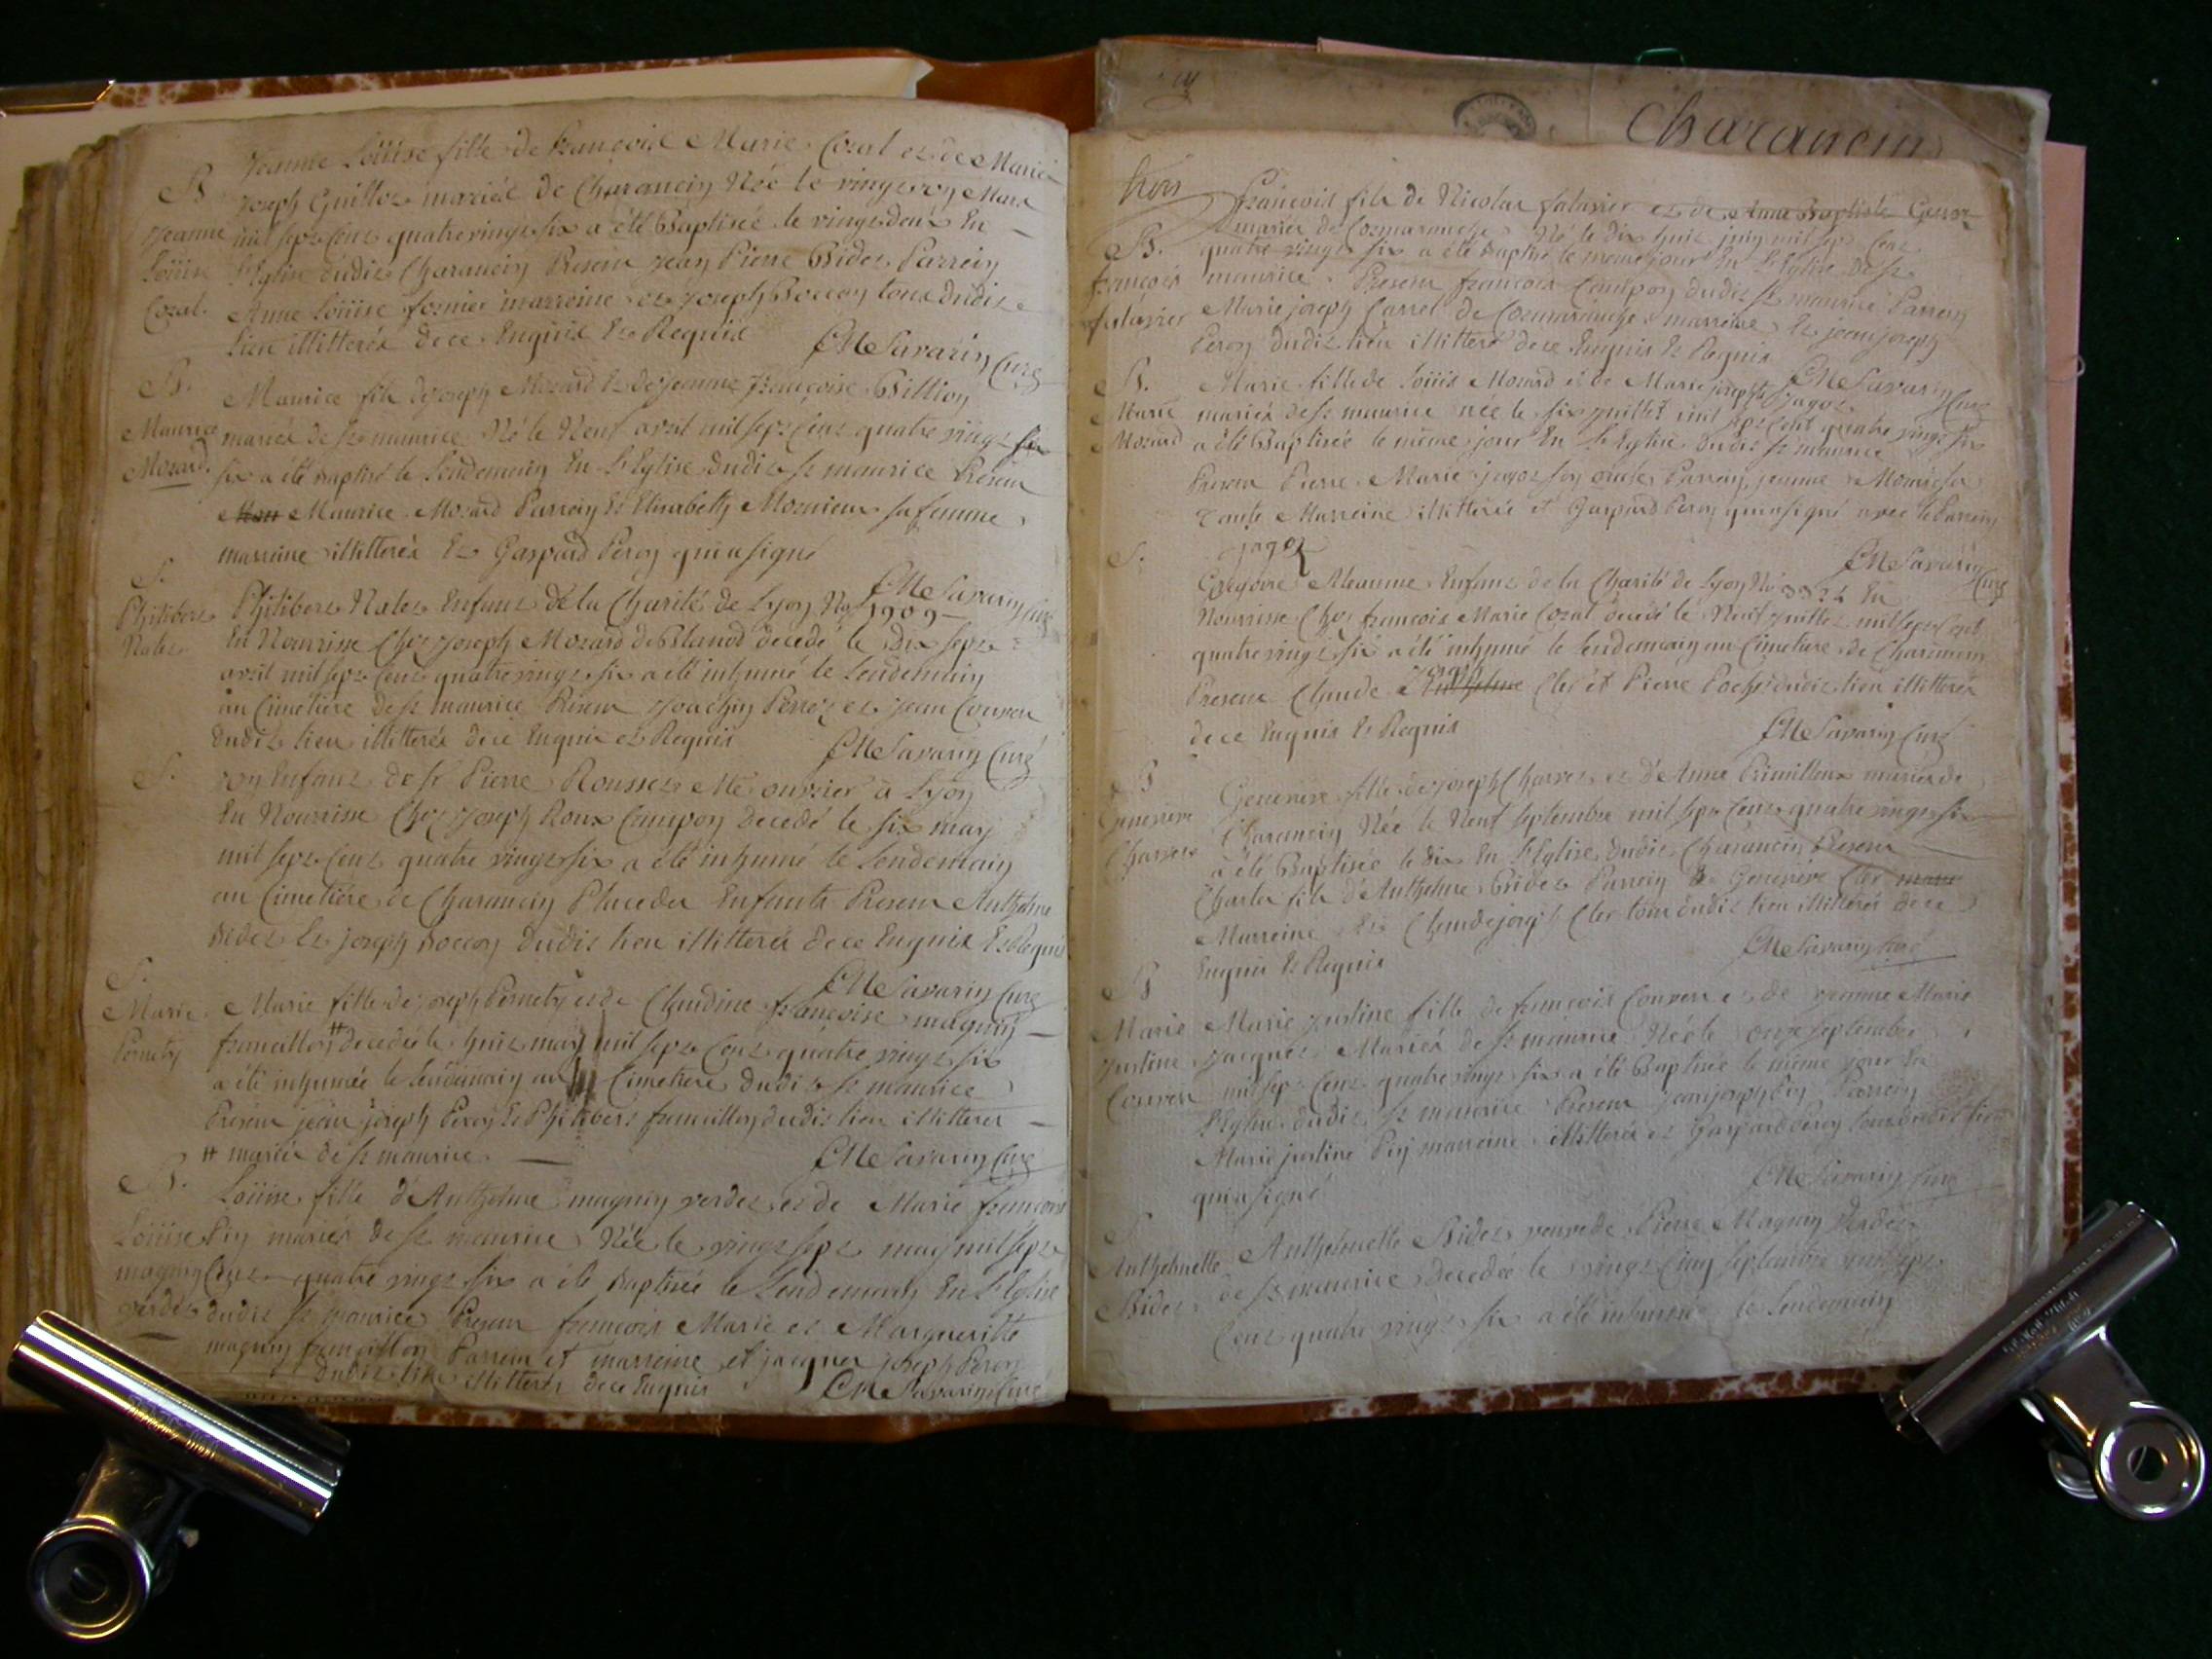 Jeanne Loüise fille de François Marie Cozal et de Marie
B Joseph Guillot mariés de Charancin Née le vingt un Mars
Jeanne mil sept Cent quatre vingt six a été Baptisée le vingt deux En
Loüise l'Eglise dudit Charancin Present Jean Pierre Bidet Parrein
Cozal. Anne Loüise fornier marreine et Joseph Boccon tous dudit
lieu illitterés de ce Enquis Et Requis
CMe Savarin Curé
B. Maurice fils de Joseph Mozard Et de Jeanne Françoise Billion
Maurice mariés de St maurice Né le Neuf avril mil sept Cent quatre vingt six
Mozard. six a été baptisé le lendemain En l'Eglise dudit St maurice Present
Maurice Mozard Parrein Et Elisabeth Mornieux sa femme
marreine illitterés Et Gaspard Peron qui a signé
CMe Savarin Curé
S.
Philibert Philibert Nalet Enfant de la Charité de Lyon No 1909
Nalet En Nourrisse Chez Joseph Mozard de Blanod decedé le dix sept
avril mil sept Cent quatre vingt six a été inhumé le lendemain
au Cimetiere de St maurice Present Joachin Perret et Jean Couven
dudit lieu illitterés de ce Enquis et Requis
CMe Savarin Curé
S. un Enfant de Sr Pierre Rousset Me ouvrier à Lyon
En Nourrisse Chez Joseph Roux Campon decedé le six may
mil sept Cent quatre vingt six a été inhumé le lendemain
au Cimetiere de Charancin Place des Enfants Present Anthelme
Bidet Et joseph Boccon dudit lieu illitterés de ce Enquis Et Requis
CMe Savarin Curé
S.
Marie Marie fille de joseph Pernety et de Claudine françoise magnin
Pernety francillon # decedée le huit may mil sept Cent quatre vingt six
a été inhumée le lendemain au Cimetiere dudit St maurice
Present jean joseph Peron Et Philibert francillon dudit lieu illitterés
# mariés de St maurice.
CMe Savarin Curé
B. Loüise fille d'Anthelme magnin verdet et de Marie françoise
Loüise Pin mariés de St maurice Née le vingt sept may mil sept
magnin Cent quatre vingt six a été baptisée le Lendemain En l'Eglise
verdet dudit St maurice Present francois Marie et Marguerite
magnin francillon Parrein et marreine et jacques joseph Peron
dudit lieu illitterés de ce Enquis
CMe Savarin Curé
Charancin
trois
François fils de Nicolas falavier et de Anne Baptiste
B. mariés de Cormaranche Né le dix huit juin mil sept Cent
françois quatre vingt six a été baptisé le meme jour En l'Eglise de St
falavier maurice Present francois Campon dudit St maurice Parrein
Marie joseph Carrel de Cormaranche marreine Et jean joseph
Peron dudit lieu illitterés de ce Enquis Et Requis
CMe Savarin Curé
B. Marie fille de Loüis Mozard et de Marie josephte jagot
Marie mariés de St maurice née le six juillet mil sept Cent quatre vingt six
Mozard a été Baptisée le même jour En l'Eglise dudit St maurice
Present Pierre Marie jagot son oncle Parrein, jeanne
tante Marreine illitterée et Gaspard Peron qui a signé avec le Parrein
jagot
CMe Savarin Curé
S. Gregoire Aleaume Enfant de la Charité de Lyon No 3324 En
Nourrisse Chez francois Marie Cozal decedé le Neuf juillet mil sept Cent
quatre vingt six a été inhumé le lendemain au Cimetiere de Charancin
Present Claude joseph Cler et Pierre Pochet dudit lieu illitterés
de ce Enquis Et Requis
CMe Savarin Curé
B Genevieve fille de joseph Charvet et d'Anne Primilleux mariés de
Genevieve Charancin Née le Neuf septembre mil sept Cent quatre vingt six
Charvet a été Baptisée le dix En l'Eglise dudit Charancin Present
Charles fils d'Anthelme Bidet Parrein Et Genevieve Cler
Marreine Et Claude joseph Cler tous dudit lieu illitterés de ce
Enquis Et Requis
CMe Savarin Curé
B
Marie Marie justine fille de francois Couven et de jeanne Marie
justine jacquet Mariés de St maurice Née le onze septembre
Couven mil sept Cent quatre vingt six a été Baptisée le même jour En
l'Eglise dudit St maurice Present jean joseph Pin Parrein
Marie justine Pin marreine illitterés et Gaspard Peron tous dudit lieu
qui a signé
CMe Savarin Curé
S
Anthelmette Anthelmette Bidet veuve de Pierre Magnin Verdet
Bidet de St maurice decedée le vingt Cinq septembre mil sept
Cent quatre vingt six a été inhumée le lendemain